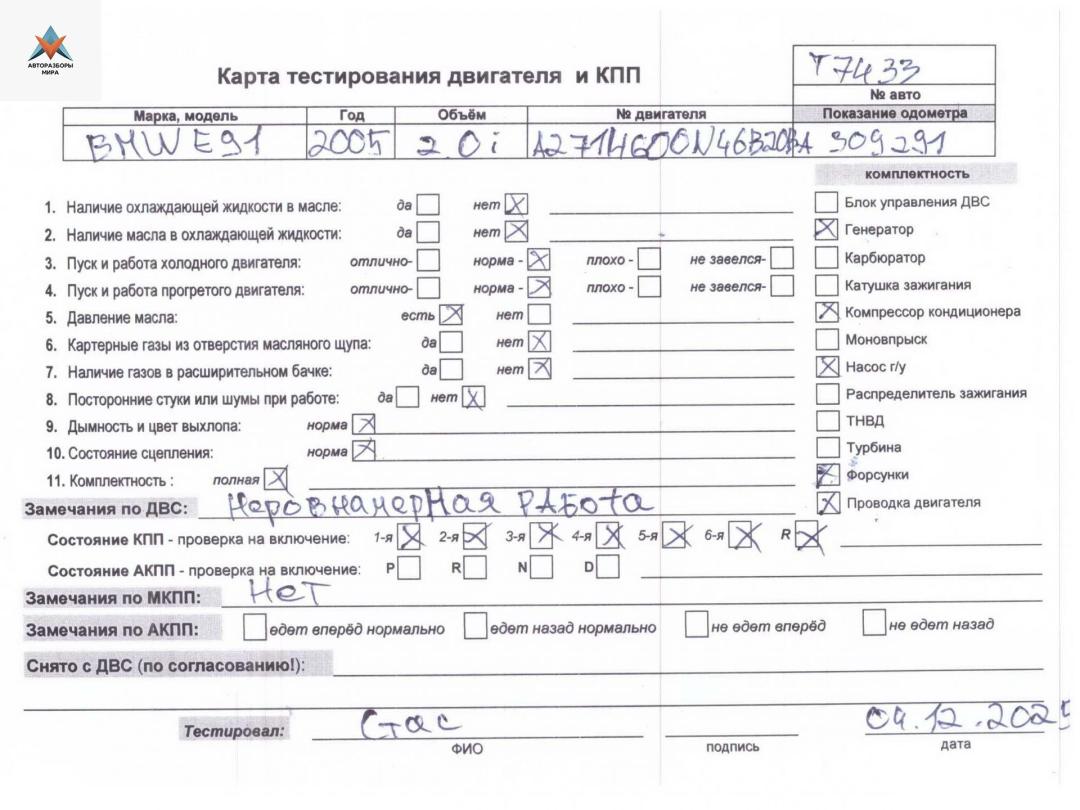 АВТОРАЗБОРЫ
МИРА
Карта тестирования двигателя и КПП
T7433
№ авто
Марка, модель Год Объём № двигателя Показание одометра
BMW E91 2005 2.0i A2714600N46B20BA 309291
комплектность
1. Наличие охлаждающей жидкости в масле: да нет Блок управления ДВС
2. Наличие масла в охлаждающей жидкости: да нет Генератор
3. Пуск и работа холодного двигателя: отлично- норма - плохо - не завелся- Карбюратор
4. Пуск и работа прогретого двигателя: отлично- норма - плохо - не завелся- Катушка зажигания
5. Давление масла: есть нет Компрессор кондиционера
6. Картерные газы из отверстия масляного щупа: да нет Моновпрыск
7. Наличие газов в расширительном бачке: да нет Насос г/у
8. Посторонние стуки или шумы при работе: да нет Распределитель зажигания
9. Дымность и цвет выхлопа: норма ТНВД
10. Состояние сцепления: норма Турбина
11. Комплектность : полная Форсунки
Замечания по ДВС: Неровнамерная работа Проводка двигателя
Состояние КПП - проверка на включение: 1-я 2-я 3-я 4-я 5-я 6-я R
Состояние АКПП - проверка на включение: P R N D
Замечания по МКПП: Нет
Замечания по АКПП: едет вперёд нормально едет назад нормально не едет вперёд не едет назад
Снято с ДВС (по согласованию!):
Тестировал: Стас 04.12.2025
ФИО подпись дата